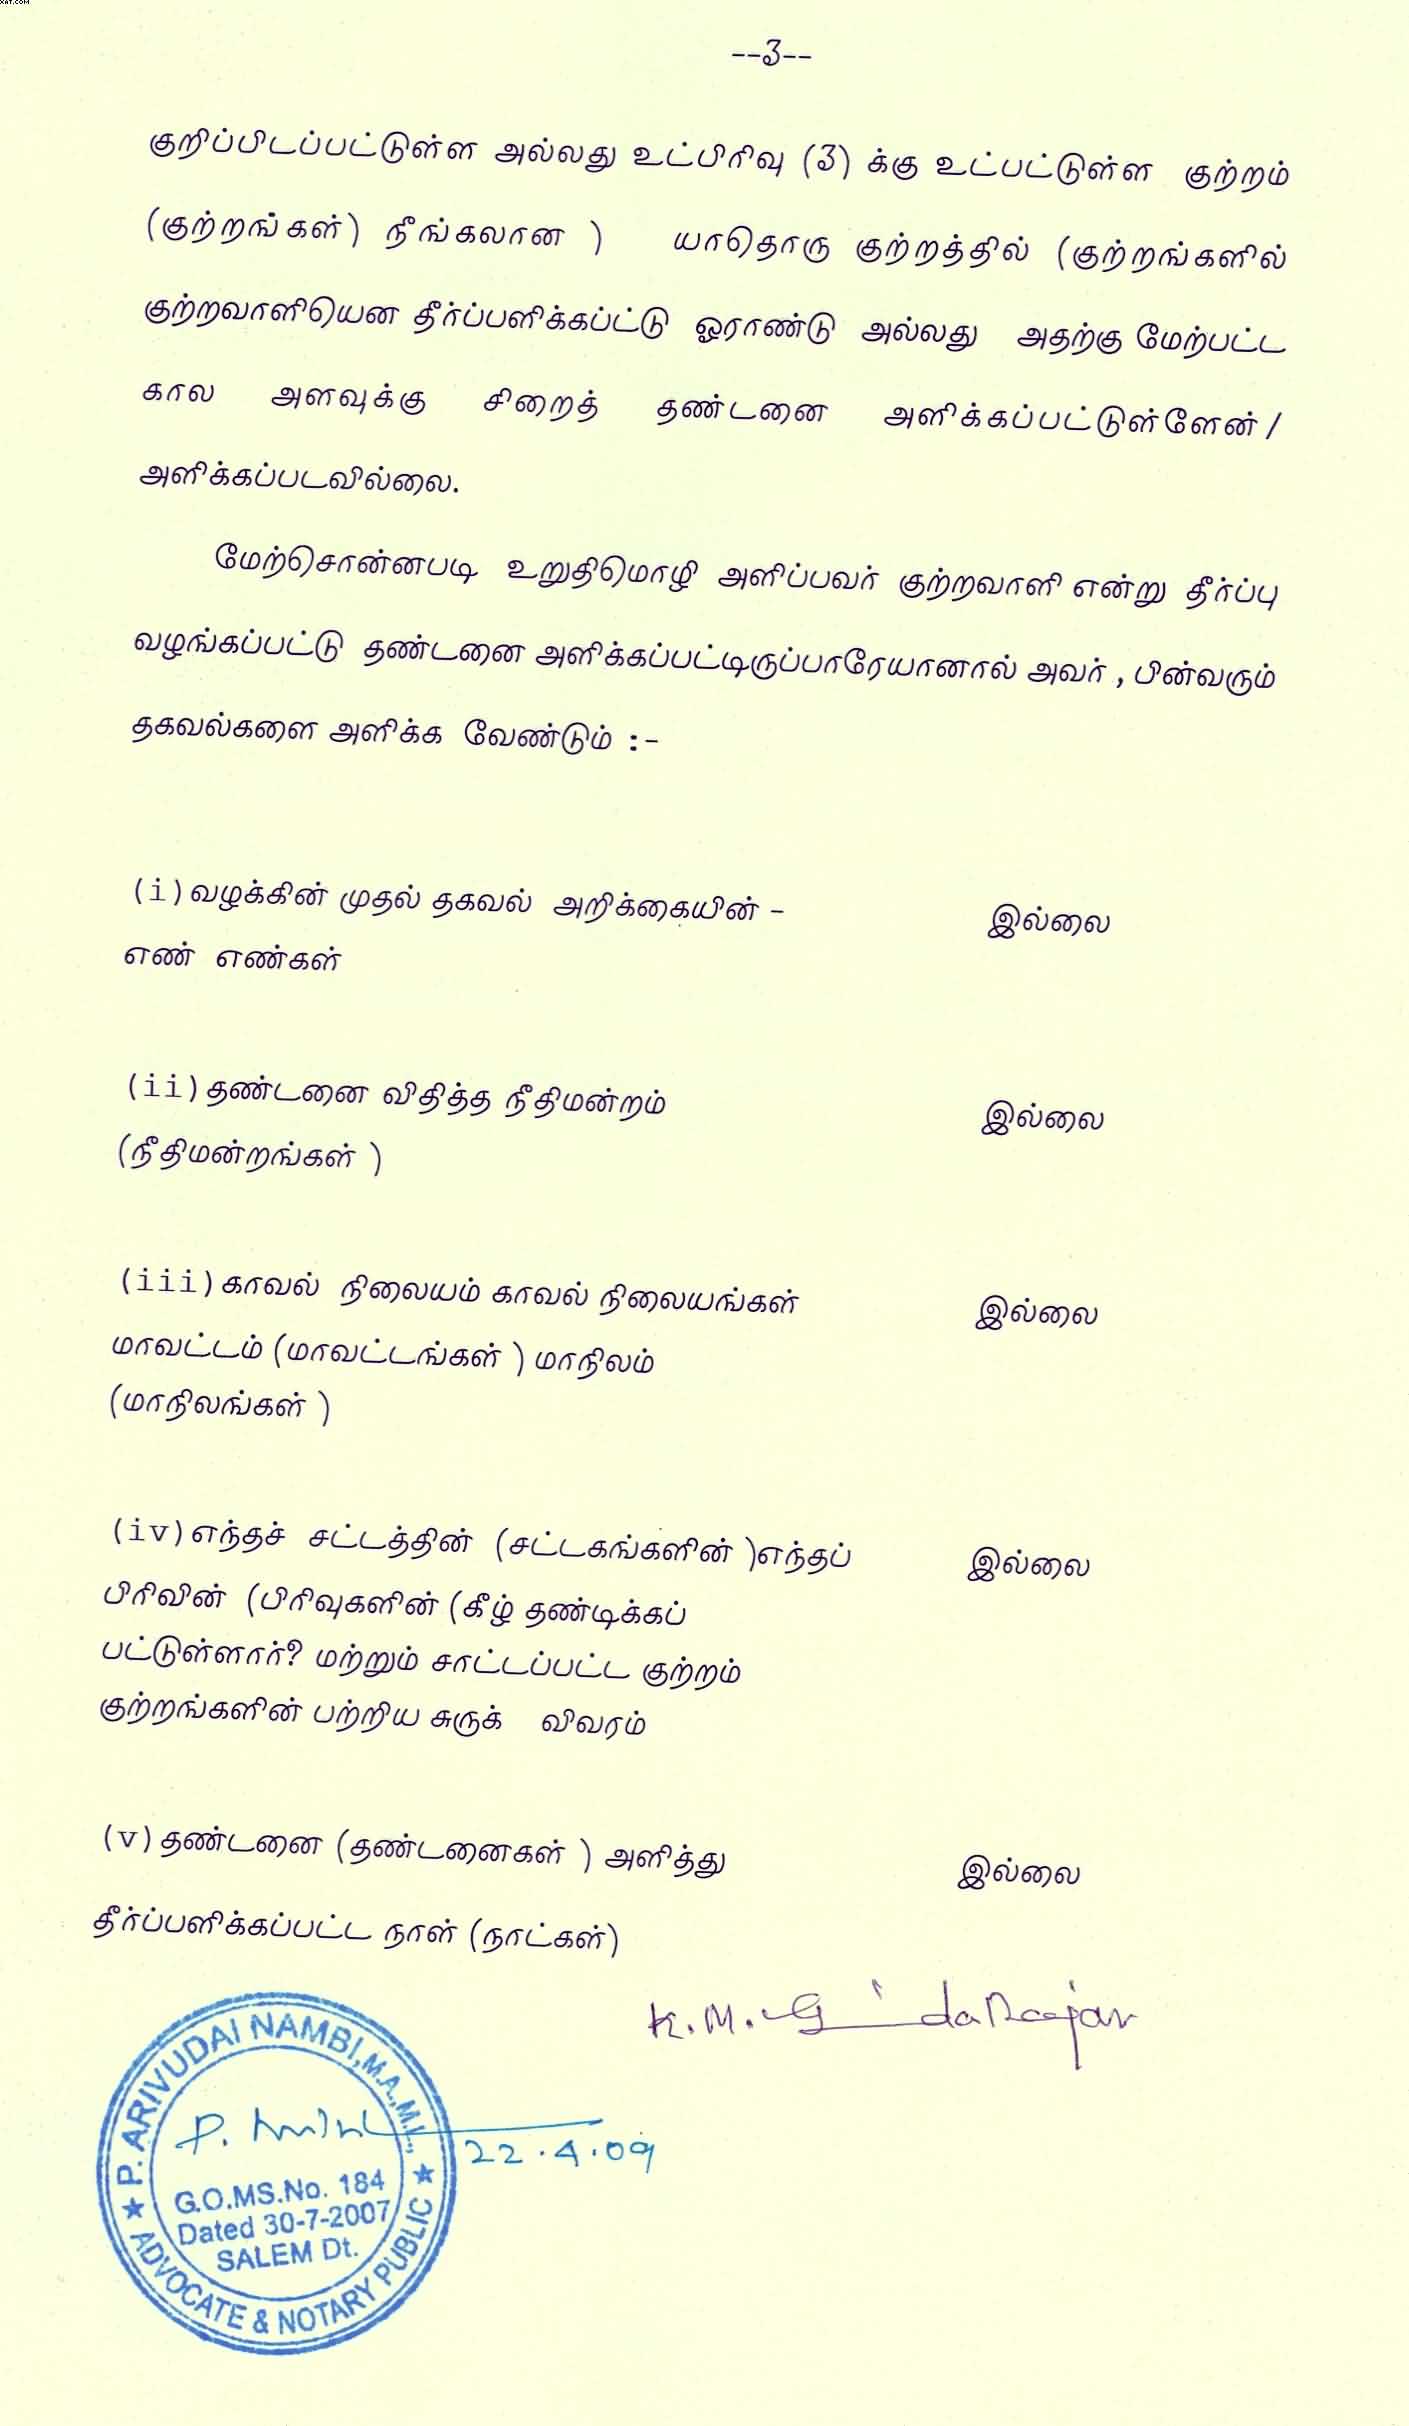 XAT.COM
--3--
குறிப்பிடப்பட்டுள்ள அல்லது உட்பிரிவு (3) க்கு உட்பட்டுள்ள குற்றம்
(குற்றங்கள்) நீங்கலான ) யாதொரு குற்றத்தில் (குற்றங்களில்
குற்றவாளியென தீர்ப்பளிக்கப்ட்டு ஓராண்டு அல்லது அதற்கு மேற்பட்ட
கால அளவுக்கு சிறைத் தண்டனை அளிக்கப்பட்டுள்ளேன்/
அளிக்கப்படவில்லை.
மேற்சொன்னபடி உறுதிமொழி அளிப்பவர் குற்றவாளி என்று தீர்ப்பு
வழங்கப்பட்டு தண்டனை அளிக்கப்பட்டிருப்பாரேயானால் அவர் , பின்வரும்
தகவல்களை அளிக்க வேண்டும் :-
(i) வழக்கின் முதல் தகவல் அறிக்கையின் - இல்லை
எண் எண்கள்
(ii) தண்டனை விதித்த நீதிமன்றம் இல்லை
(நீதிமன்றங்கள் )
(iii) காவல் நிலையம் காவல் நிலையங்கள் இல்லை
மாவட்டம் (மாவட்டங்கள் ) மாநிலம்
(மாநிலங்கள் )
(iv) எந்தச் சட்டத்தின் (சட்டகங்களின் )எந்தப் இல்லை
பிரிவின் (பிரிவுகளின் (கீழ் தண்டிக்கப்
பட்டுள்ளார்? மற்றும் சாட்டப்பட்ட குற்றம்
குற்றங்களின் பற்றிய சுருக் விவரம்
(v) தண்டனை (தண்டனைகள் ) அளித்து இல்லை
தீர்ப்பளிக்கப்பட்ட நாள் (நாட்கள்)
K.M.
P. ARIVUDAI NAMBI, M.A.,M.L.,
22.4.09
G.O.MS.No. 184
Dated 30-7-2007
SALEM Dt.
ADVOCATE & NOTARY PUBLIC